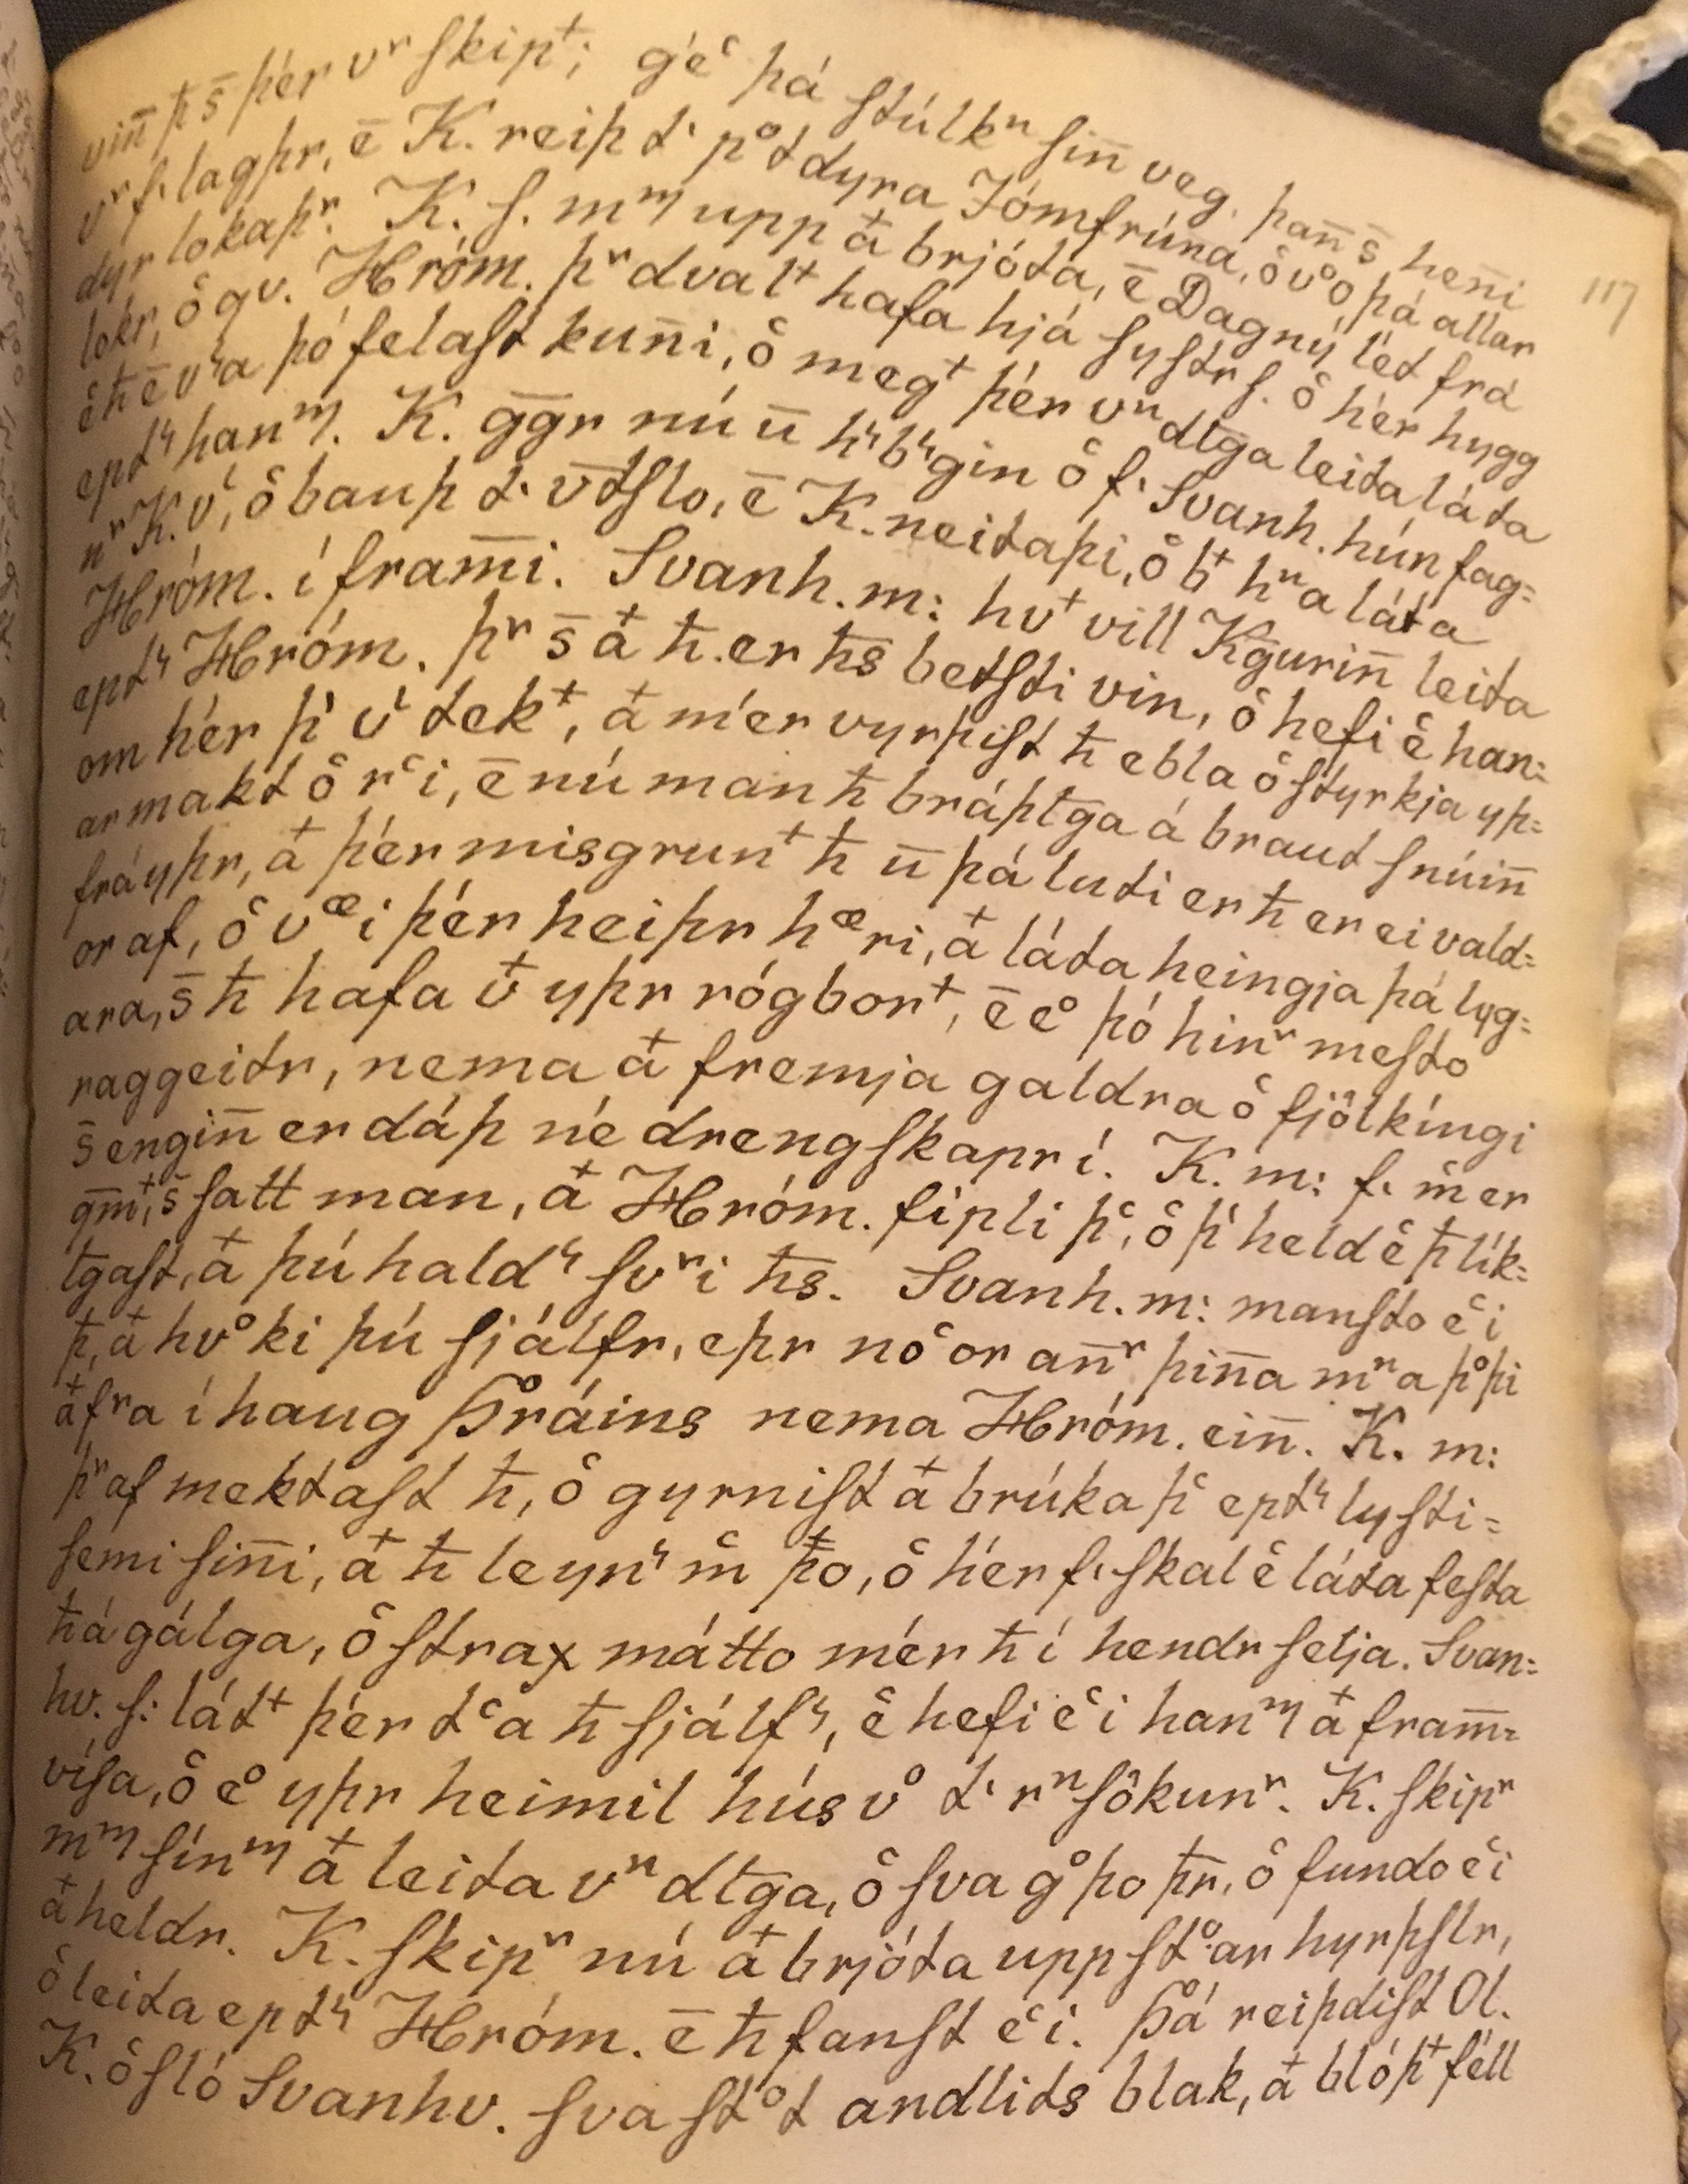 vin̄ ħs̄ þér vʳ skip⁺; géͨ þá stúlkⁿ sin̄ veg. þan̄ s̄ hen̄i
vʳ f. lagþr, ē K. reiþ t· pºt dyra Jómfrúna, ô vºo þá allar
dyr lokaþʳ. K. s. mᵐ upp ȧ brjóta, ē Dagný lét frá
lokr, ô gv. Hróm. þʳ dval⁺ hafa hjá systr s. ô hér hygg
ê ħ ē vʳa þó felast kun̄i, ô meg⁺ þér vⁿdtḡa leita láta
eptʳ hanᵐ. K. ḡḡr nú ū hʳbʳgin ô f· Svanh. hún fag=
nʳ K. vͥ, ô bauþ t· v̄tslo, ē K. neitaþi, ô b⁺ hⁿa láta
Hróm. í fram̄i. Svanh. m: hv⁺ vill Kḡurin̄ leita
eptʳ Hróm. þʳ s̄ ȧ ħ. er ħs betsti vin, ô hefi ê han=
om hér þͥ vͥ tek⁺, ȧ mér vyrþist ħ ebla ô styrkja yþ=
ar makt ô rͨi, ē nú man ħ bráþtḡa á braut snúin̄
frá yþr, ȧ þér misgrun⁺ ħ ū þá luti er ħ er ei vald=
or af, ô vœi þér heiþr hœri, ȧ láta heingja þá lyg=
ara, s̄ ħ hafa v̇ yþr rógbor⁺, ē eº þó hinʳ mesto
raggeitr, nema ȧ fremja galdra ô fjölkíngi
s̄ engin̄ er dáþ né drengskapr í. K. m: f· m̂ er
ḡm⁺, s̄ satt man, ȧ Hróm. fípli þͨ, ô þͥ held ê þ lík=
tḡast, ȧ þú haldʳ svʳi ħs. Svanh. m: mansto eͨi
þ, ȧ hvºki þú sjálfr, eþr nóͨor an̄ʳ þin̄a mⁿa þºþi
ȧ fʳa í haug Þráins nema Hróm. ein̄. K. m:
þʳ af mektast ħ, ô gyrnist ȧ brúka þͨ eptʳ lysti=
semi sin̄i, ȧ ħ leynʳ m̂ þo, ô hér f· skal ê láta festa
ħ á gálga, ô strax mátto mér ħ í hendr selja. Svan=
hv. s: lát⁺ þér tͨa ħ sjálfʳ, ê hefi eͨi hanᵐ ȧ fram̄=
vísa, ô eº yþr heimil hús vº t· rⁿsökunʳ. K. skipʳ
mᵐ sínᵐ ȧ leita vⁿdtḡa, ô sva gºþo þr̄, ô fundo eͨi
ȧ heldr. K. skipʳ nú ȧ brjóta upp stº·ar hyrþslr,
ô leita eptʳ Hróm. ē ħ fanst eͨi. Þá reiþdist Ol.
K. ô sló Svanhv. sva stºt andlits blak, ȧ blóþ⁺ féll
117